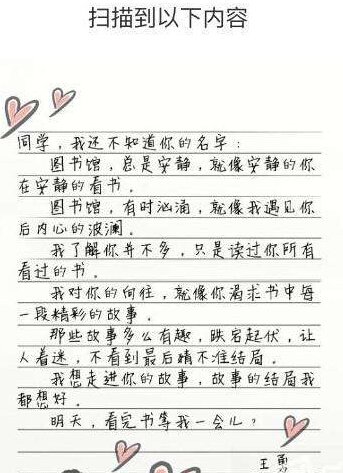 扫描到以下内容
同学，我还不知道你的名字：
图书馆，总是安静，就像安静的你
在安静的看书。
图书馆，有时汹涌，就像我遇见你
后内心的波澜。
我了解你并不多，只是读过你所有
看过的书。
我对你的向往，就像你渴求书中每
一段精彩的故事。
那些故事多么有趣，跌宕起伏，让
人着迷，不看到最后猜不准结局。
我想走进你的故事，故事的结局我
都想好。
明天，看完书等我一会儿？
王勇